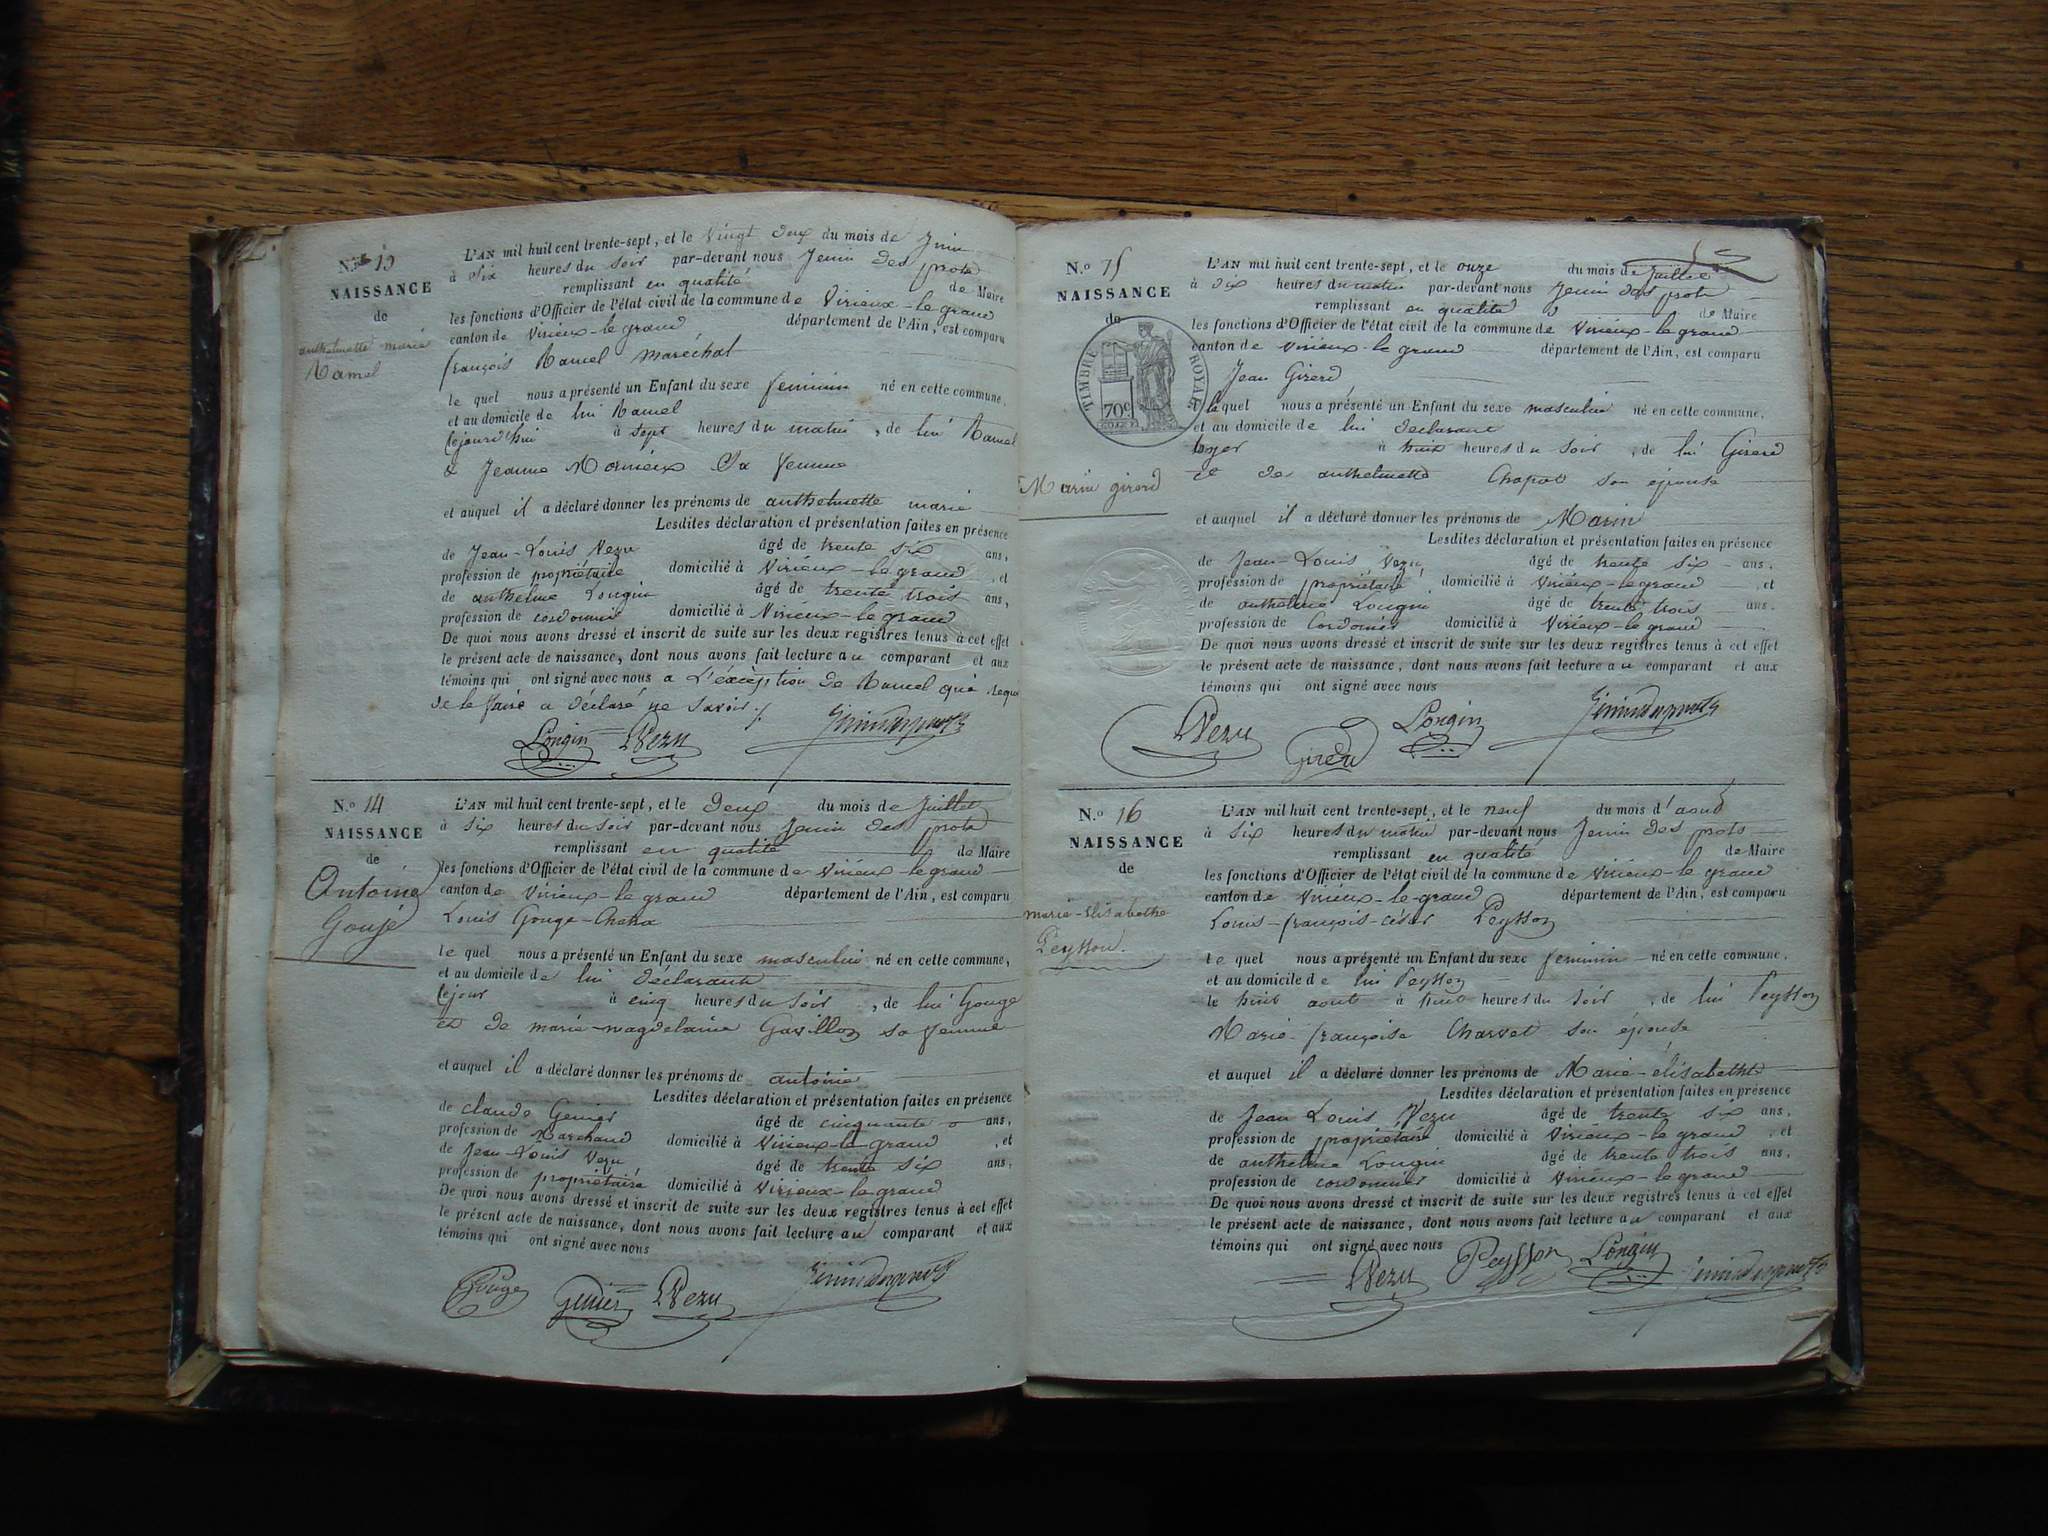 N.o 13
NAISSANCE
de
anthelmette marie
Ramel
L'AN mil huit cent trente-sept, et le Vingt deux du mois de Juin
à six heures du soir par-devant nous Jenin des prots
remplissant en qualité de Maire
les fonctions d'Officier de l'état civil de la commune de Virieux-le grand
canton de Virieux-le grand département de l'Ain, est comparu
françois Ramel maréchal
le quel nous a présenté un Enfant du sexe feminin né en cette commune,
et au domicile de lui Ramel
cejourd'hui à sept heures du matin, de lui Ramel
& Jeanne Mornieux Sa femme
et auquel il a déclaré donner les prénoms de anthelmette marie
Lesdites déclaration et présentation faites en présence
de Jean-Louis Vezu âgé de trente six ans,
profession de propriétaire domicilié à Virieux-le grand, et
de anthelme Longin âgé de trente trois ans,
profession de cordonnier domicilié à Virieux-le grand
De quoi nous avons dressé et inscrit de suite sur les deux registres tenus à cet effet
le présent acte de naissance, dont nous avons fait lecture au comparant et aux
témoins qui ont signé avec nous a L'éxèption de Ramel qui requi
de le faire a déclaré ne Savoir ./.
Longin Vezu Jenindesprots
N.o 14
NAISSANCE
de
Antoine
Gouje
L'AN mil huit cent trente-sept, et le Deux du mois de Juillet
à six heures du soir par-devant nous Jenin des prots
remplissant en qualité de Maire
les fonctions d'Officier de l'état civil de la commune de Virieux-le grand
canton de Virieux-le grand département de l'Ain, est comparu
Louis Gouge-
le quel nous a présenté un Enfant du sexe masculin né en cette commune,
et au domicile de lui Déclarant
cejour à cinq heures du soir, de lui Gouge
et de marie-magdelaine Gavillon sa femme
et auquel il a déclaré donner les prénoms de antoine
Lesdites déclaration et présentation faites en présence
de claude Genier âgé de cinquante ans,
profession de Marchand domicilié à Virieux-le grand, et
de Jean-Louis Vezu âgé de trente six ans,
profession de propriétaire domicilié à Virieux-le grand
De quoi nous avons dressé et inscrit de suite sur les deux registres tenus à cet effet
le présent acte de naissance, dont nous avons fait lecture au comparant et aux
témoins qui ont signé avec nous
Gouge Genier Vezu Jenindesprots
N.o 15
NAISSANCE
de
TIMBRE ROYAL
70c
Marin girerd
L'AN mil huit cent trente-sept, et le onze du mois de Juillet
à dix heures du matin par-devant nous Jenin des prots
remplissant en qualité de Maire
les fonctions d'Officier de l'état civil de la commune de Virieux-le grand
canton de Virieux-le grand département de l'Ain, est comparu
Jean Girerd
lequel nous a présenté un Enfant du sexe masculin né en cette commune,
et au domicile de lui declarant
hyer à huit heures du soir, de lui Girerd
et de anthelmette Chapot son épouse
et auquel il a déclaré donner les prénoms de Marin
Lesdites déclaration et présentation faites en présence
de Jean-Louis Vezu âgé de trente six ans,
profession de propriétaire domicilié à Virieux-le grand, et
de anthelme Longin âgé de trente trois ans.
profession de Cordonier domicilié à Virieux-le grand
De quoi nous avons dressé et inscrit de suite sur les deux registres tenus à cet effet
le présent acte de naissance, dont nous avons fait lecture au comparant et aux
témoins qui ont signé avec nous
Vezu Girerd Longin Jenindesprots
N.o 16
NAISSANCE
de
marie-Elisabethe
Peysson.
L'AN mil huit cent trente-sept, et le neuf du mois d'aout
à six heures du matin par-devant nous Jenin des prots
remplissant en qualité de Maire
les fonctions d'Officier de l'état civil de la commune de Virieux-le grand
canton de Virieux-le-grand département de l'Ain, est comparu
Louis-françois-césar Peysson
le quel nous a présenté un Enfant du sexe feminin né en cette commune,
et au domicile de lui Peysson
le huit aout à huit heures du soir, de lui Peysson
Marie-françoise Charvet son épouse
et auquel il a déclaré donner les prénoms de Marie-élisabethe
Lesdites déclaration et présentation faites en présence
de Jean Louis Vezu âgé de trente six ans,
profession de propriétaire domicilié à Virieux-le grand, et
de anthelme Longin âgé de trente trois ans,
profession de cordonnier domicilié à Virieux-le grand
De quoi nous avons dressé et inscrit de suite sur les deux registres tenus à cet effet
le présent acte de naissance, dont nous avons fait lecture au comparant et aux
témoins qui ont signé avec nous
Vezu Peysson Longin Jenindesprots